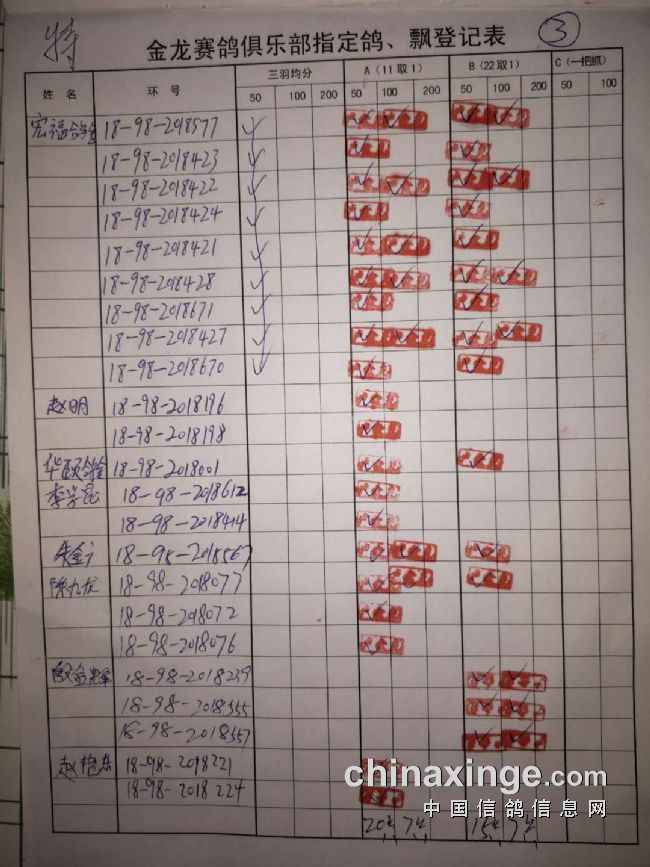 特
金龙赛鸽俱乐部指定鸽、飘登记表 ③
姓 名 环 号 三羽均分 A（11取1） B（22取1） C（一把抓）
50 100 200 50 100 200 50 100 200 50 100
宏福鸽舍 18-98-2018577 ✓
18-98-2018423 ✓
18-98-2018422 ✓
18-98-2018424 ✓
18-98-2018421 ✓
18-98-2018428 ✓
18-98-2018671 ✓
18-98-2018427 ✓
18-98-2018670 ✓
赵明 18-98-2018196
18-98-2018198
华颐鸽舍 18-98-2018001
18-98-2018612
18-98-2018414
朱金 18-98-2018567
陈九龙 18-98-2018077
18-98-2018072
18-98-2018076
18-98-2018239
18-98-2018555
18-98-2018557
赵艳东 18-98-2018221
18-98-2018224
20 7 15 7
chinaxinge.com
中国信鸽信息网